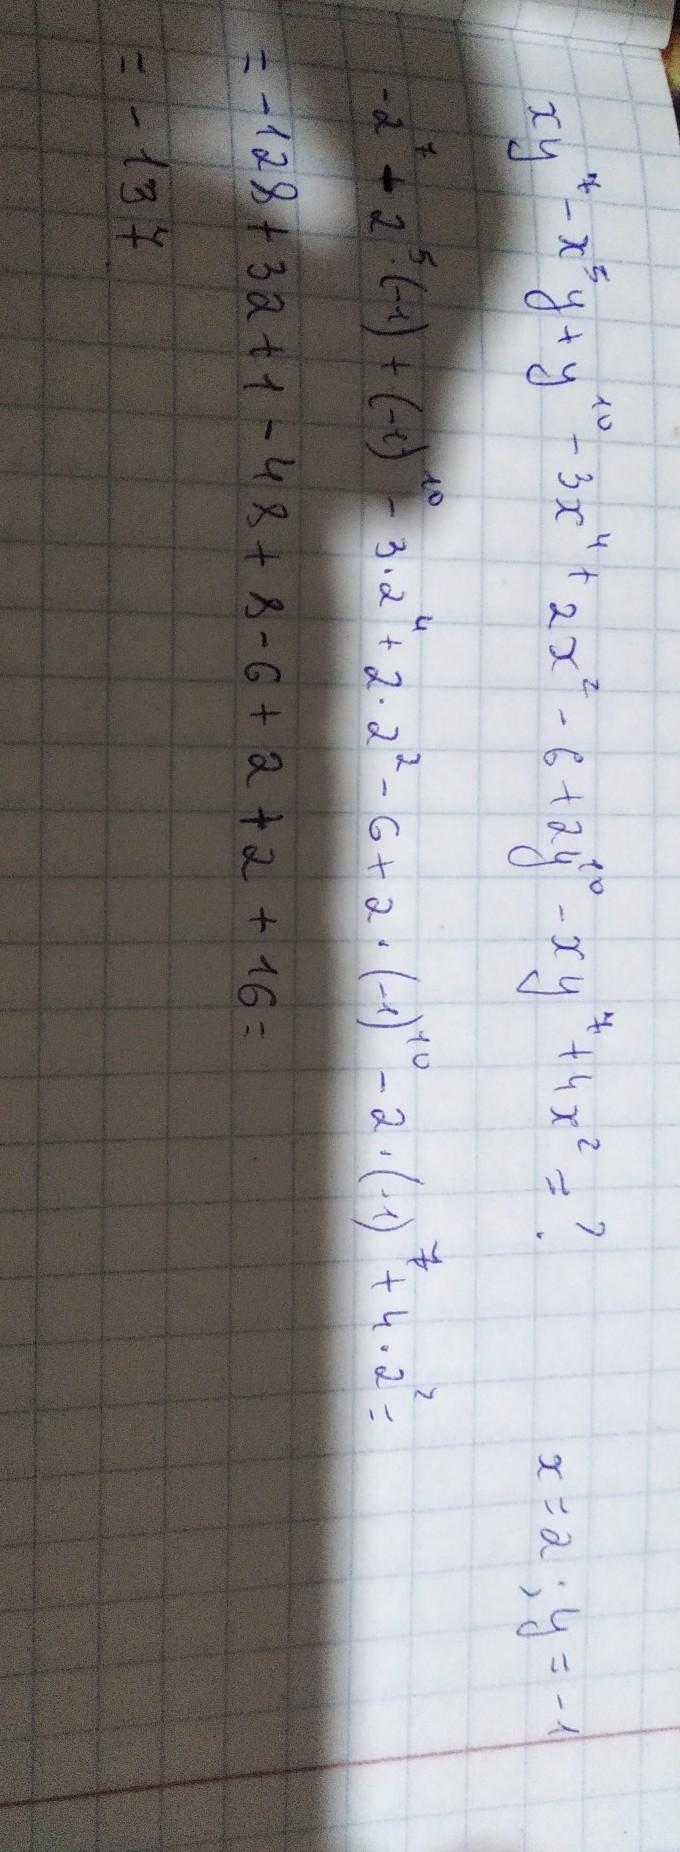 xy⁷ - x⁵y + y¹⁰ - 3x⁴ + 2x² - 6 + 2y¹⁰ - xy⁷ + 4x² = ? x = 2; y = -1
-2⁷ - 2⁵·(-1) + (-1)¹⁰ - 3·2⁴ + 2·2² - 6 + 2·(-1)¹⁰ - 2·(-1)⁷ + 4·2² =
= -128 + 32 + 1 - 48 + 8 - 6 + 2 + 2 + 16 =
= -137